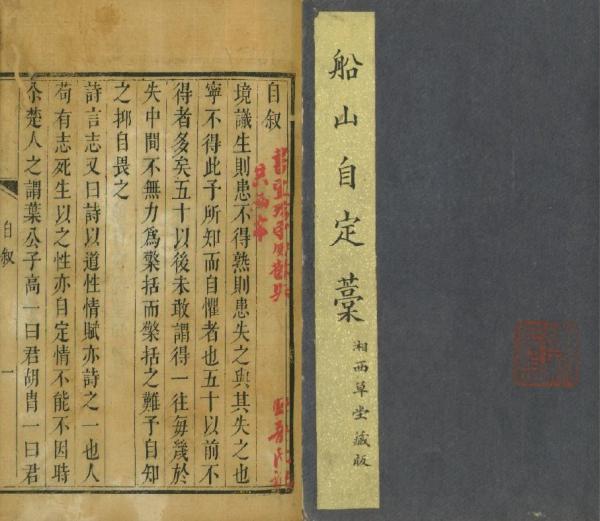 船山自定藁
湘西草堂藏版
自叙
境識生則患不得熟則患失之與其失之也
寧不得此予所知而自懼者也五十以前不
得者多矣五十以後未敢謂得一往每㡬於
失中間不無力為檃括而檃括之難予自知
之抑自畏之
詩言志又曰詩以道性情賦亦詩之一也人
苟有志死生以之性亦自定情不能不因時
尒楚人之謂葉公子高一曰君胡胄一曰君
自叙
一